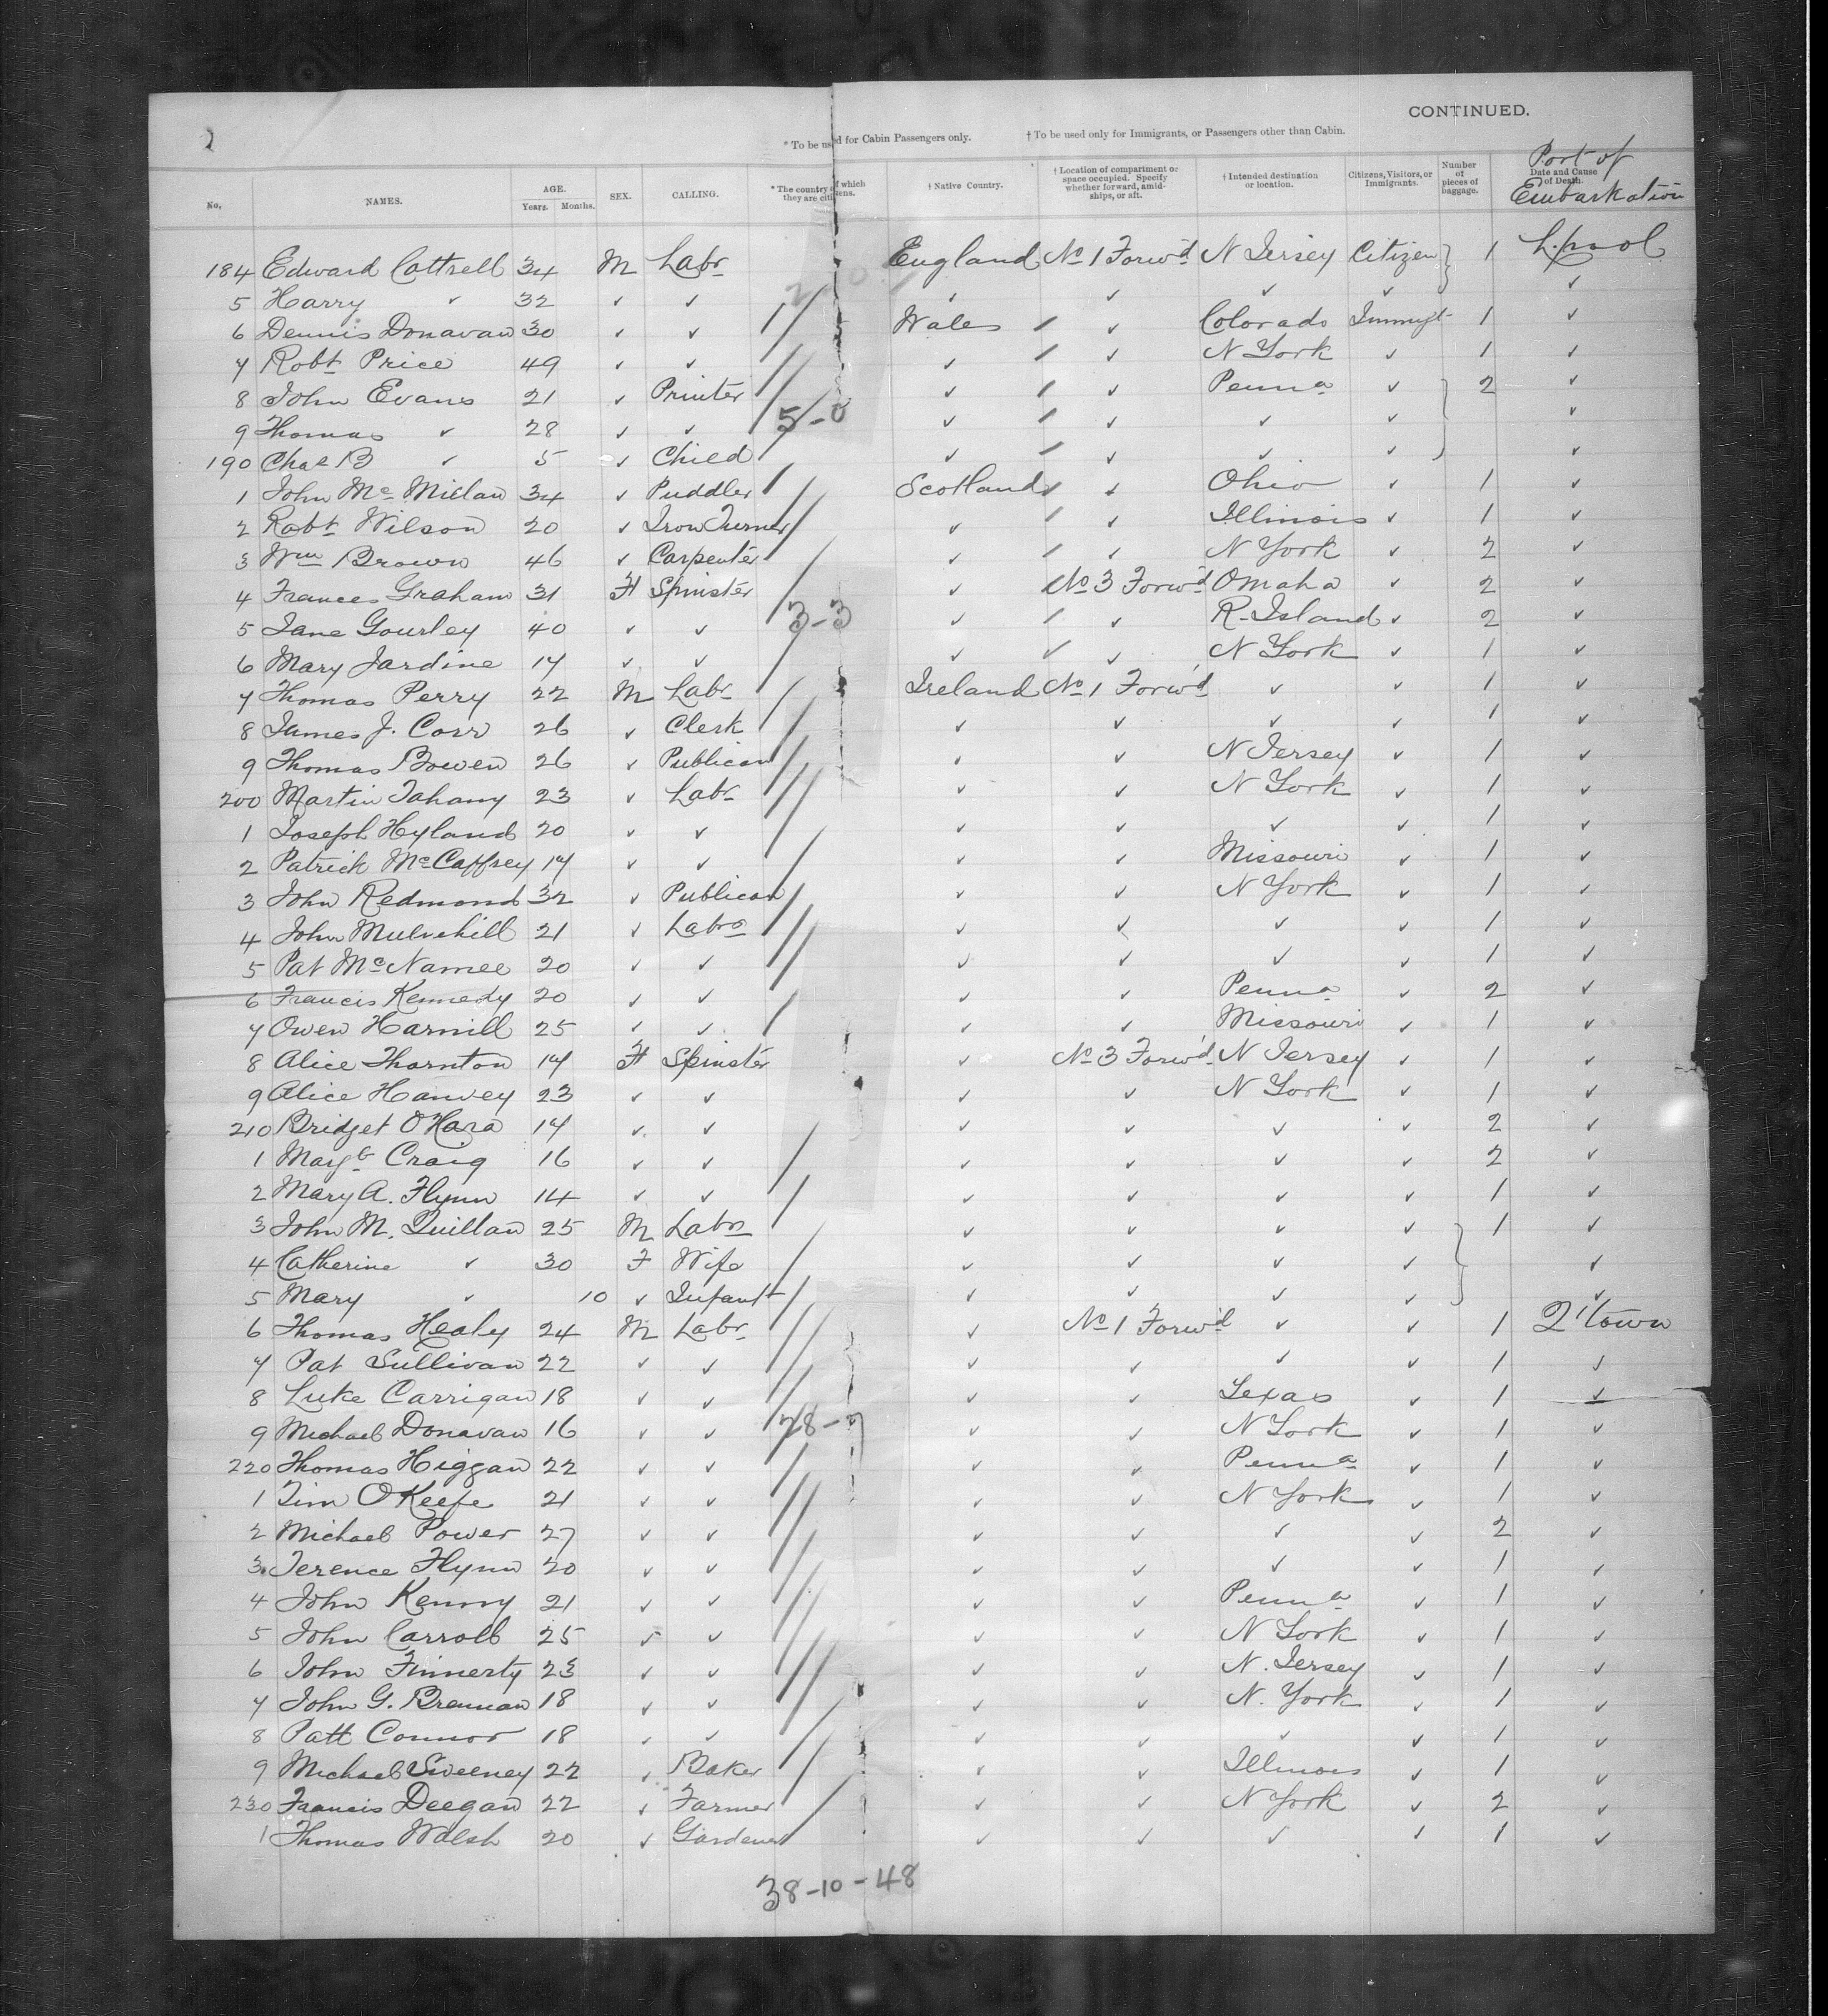 CONTINUED.
* To be used for Cabin Passengers only. † To be used only for Immigrants, or Passengers other than Cabin.
Port of
Embarkation
No. NAMES. AGE. Years. Months. SEX. CALLING. * The country of which they are citizens. † Native Country. † Location of compartment or space occupied. Specify whether forward, amidships, or aft. † Intended destination or location. Citizens, Visitors, or Immigrants. Number of pieces of baggage. Date and Cause of Death.
184 Edward Cottrell 34 M Labr England No 1 Forw'd N Jersey Citizen 1 L.pool
5 Harry ✓ 32 ✓ ✓ ✓ ✓ ✓ ✓ ✓
6 Dennis Donavan 30 ✓ ✓ Wales / ✓ Colorado Immigt 1 ✓
7 Robt Price 49 ✓ ✓ ✓ / ✓ N York ✓ 1 ✓
8 John Evans 21 ✓ Printer ✓ / ✓ Penna ✓ 2 ✓
5-0
9 Thomas ✓ 28 ✓ ✓ ✓ / ✓ ✓ ✓ ✓
190 Chas B ✓ 5 ✓ Child ✓ / ✓ ✓ ✓ ✓
1 John Mc Millan 34 ✓ Puddler Scotland / ✓ Ohio ✓ 1 ✓
2 Robt Wilson 20 ✓ Iron Turner ✓ / ✓ Illinois ✓ 1 ✓
3 Wm Brown 46 ✓ Carpenter ✓ / ✓ N York ✓ 2 ✓
4 Frances Graham 31 F Spinster ✓ No 3 Forw'd Omaha ✓ 2 ✓
3-3
5 Jane Gourley 40 ✓ ✓ ✓ / ✓ R. Island ✓ 2 ✓
6 Mary Jardine 17 ✓ ✓ ✓ ✓ ✓ N York ✓ 1 ✓
7 Thomas Perry 22 M Labr Ireland No 1 Forw'd ✓ ✓ 1 ✓
8 James J. Corr 26 ✓ Clerk ✓ ✓ ✓ ✓ 1 ✓
9 Thomas Bowen 26 ✓ Publican ✓ ✓ N Jersey ✓ 1 ✓
200 Martin Tahany 23 ✓ Labr ✓ ✓ N York ✓ 1 ✓
1 Joseph Hyland 20 ✓ ✓ ✓ ✓ ✓ ✓ 1 ✓
2 Patrick McCaffrey 17 ✓ ✓ ✓ ✓ Missouri ✓ 1 ✓
3 John Redmond 32 ✓ Publican ✓ ✓ N York ✓ 1 ✓
4 John Mulvehill 21 ✓ Labr ✓ ✓ ✓ ✓ 1 ✓
5 Pat McNamee 20 ✓ ✓ ✓ ✓ ✓ ✓ 1 ✓
6 Francis Kennedy 20 ✓ ✓ ✓ ✓ Penna ✓ 2 ✓
7 Owen Harnill 25 ✓ ✓ ✓ ✓ Missouri ✓ 1 ✓
8 Alice Thornton 17 F Spinster ✓ No 3 Forw'd N Jersey ✓ 1 ✓
9 Alice Hanvey 23 ✓ ✓ ✓ ✓ N York ✓ 1 ✓
210 Bridget O'Hara 17 ✓ ✓ ✓ ✓ ✓ ✓ 2 ✓
1 Margt Craig 16 ✓ ✓ ✓ ✓ ✓ ✓ 2 ✓
2 Mary A. Flynn 14 ✓ ✓ ✓ ✓ ✓ ✓ 1 ✓
3 John M. Quillan 25 M Labr ✓ ✓ ✓ ✓ 1 ✓
4 Catherine ✓ 30 F Wife ✓ ✓ ✓ ✓ ✓
5 Mary ✓ 10 ✓ Infant ✓ ✓ ✓ ✓ ✓
6 Thomas Healy 24 M Labr ✓ No 1 Forw'd ✓ ✓ 1 Q'town
7 Pat Sullivan 22 ✓ ✓ ✓ ✓ ✓ ✓ 1 ✓
8 Luke Carrigan 18 ✓ ✓ ✓ ✓ Texas ✓ 1 ✓
9 Michael Donavan 16 ✓ ✓ 28-7 ✓ ✓ N York ✓ 1 ✓
220 Thomas Higgan 22 ✓ ✓ ✓ ✓ Penna ✓ 1 ✓
1 Tim O'Keefe 21 ✓ ✓ ✓ ✓ N York ✓ 1 ✓
2 Michael Power 27 ✓ ✓ ✓ ✓ ✓ ✓ 2 ✓
3 Terence Flynn 20 ✓ ✓ ✓ ✓ ✓ ✓ 1 ✓
4 John Kenny 21 ✓ ✓ ✓ ✓ Penna ✓ 1 ✓
5 John Carroll 25 ✓ ✓ ✓ ✓ N York ✓ 1 ✓
6 John Finnerty 23 ✓ ✓ ✓ ✓ N. Jersey ✓ 1 ✓
7 John G. Brennan 18 ✓ ✓ ✓ ✓ N. York ✓ 1 ✓
8 Patt Connor 18 ✓ ✓ ✓ ✓ ✓ ✓ 1 ✓
9 Michael Sweeney 22 ✓ Baker ✓ ✓ Illinois ✓ 1 ✓
230 Francis Deegan 22 ✓ Farmer ✓ ✓ N York ✓ 2 ✓
1 Thomas Walsh 20 ✓ Gardener ✓ ✓ ✓ ✓ 1 ✓
38-10-48